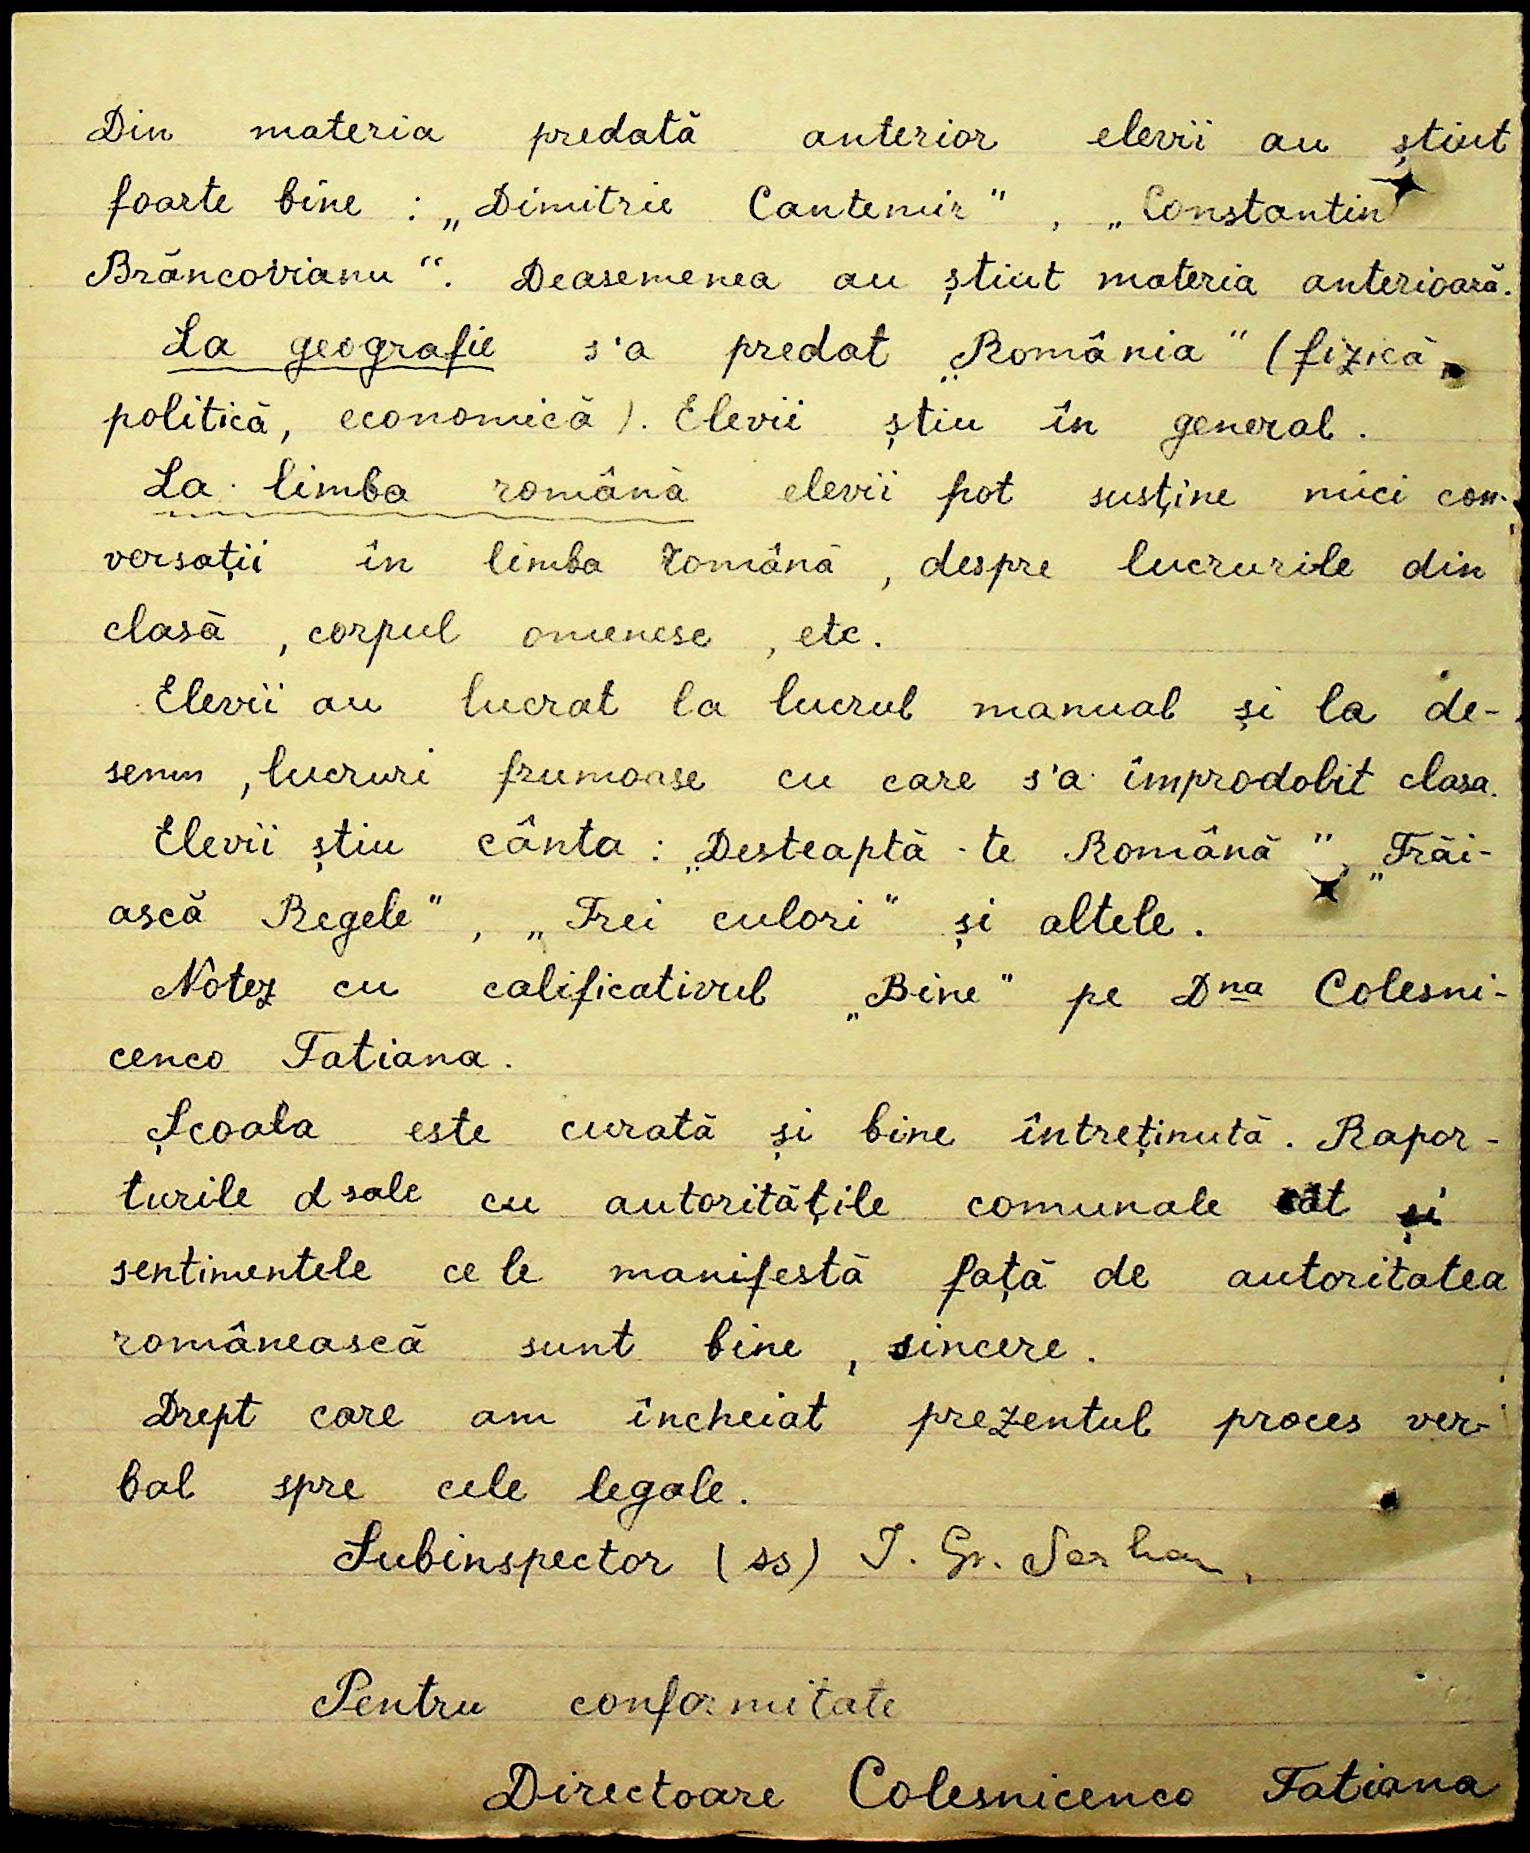 Din materia predată anterior elevii au știut
foarte bine : „Dimitrie Cantemir", „Constantin
Brăncovianu“. Deasemenea au știut materia anterioară.
La geografie s'a predat „România" (fizică,
politică, economică). Elevii știu în general.
La limba română elevii pot susține mici con-
versații în limba română, despre lucrurile din
clasă, corpul omenesc, etc.
Elevii au lucrat la lucrul manual și la de-
semn, lucruri frumoase cu care s'a împrodobit clasa.
Elevii știu cânta : „Desteaptă-te Română", „Trăi-
ască Regele", „Trei culori" și altele.
Notez cu calificativul „Bine" pe Dna Colesni-
cenco Tatiana.
Școala este curată și bine întreținută. Rapor-
turile dsale cu autoritățile comunale cât și
sentimentele ce le manifestă față de autoritatea
românească sunt bine, sincere.
Drept care am încheiat prezentul proces ver-
bal spre cele legale.
Subinspector (ss) I. Gr.
Pentru conformitate
Directoare Colesnicenco Tatiana